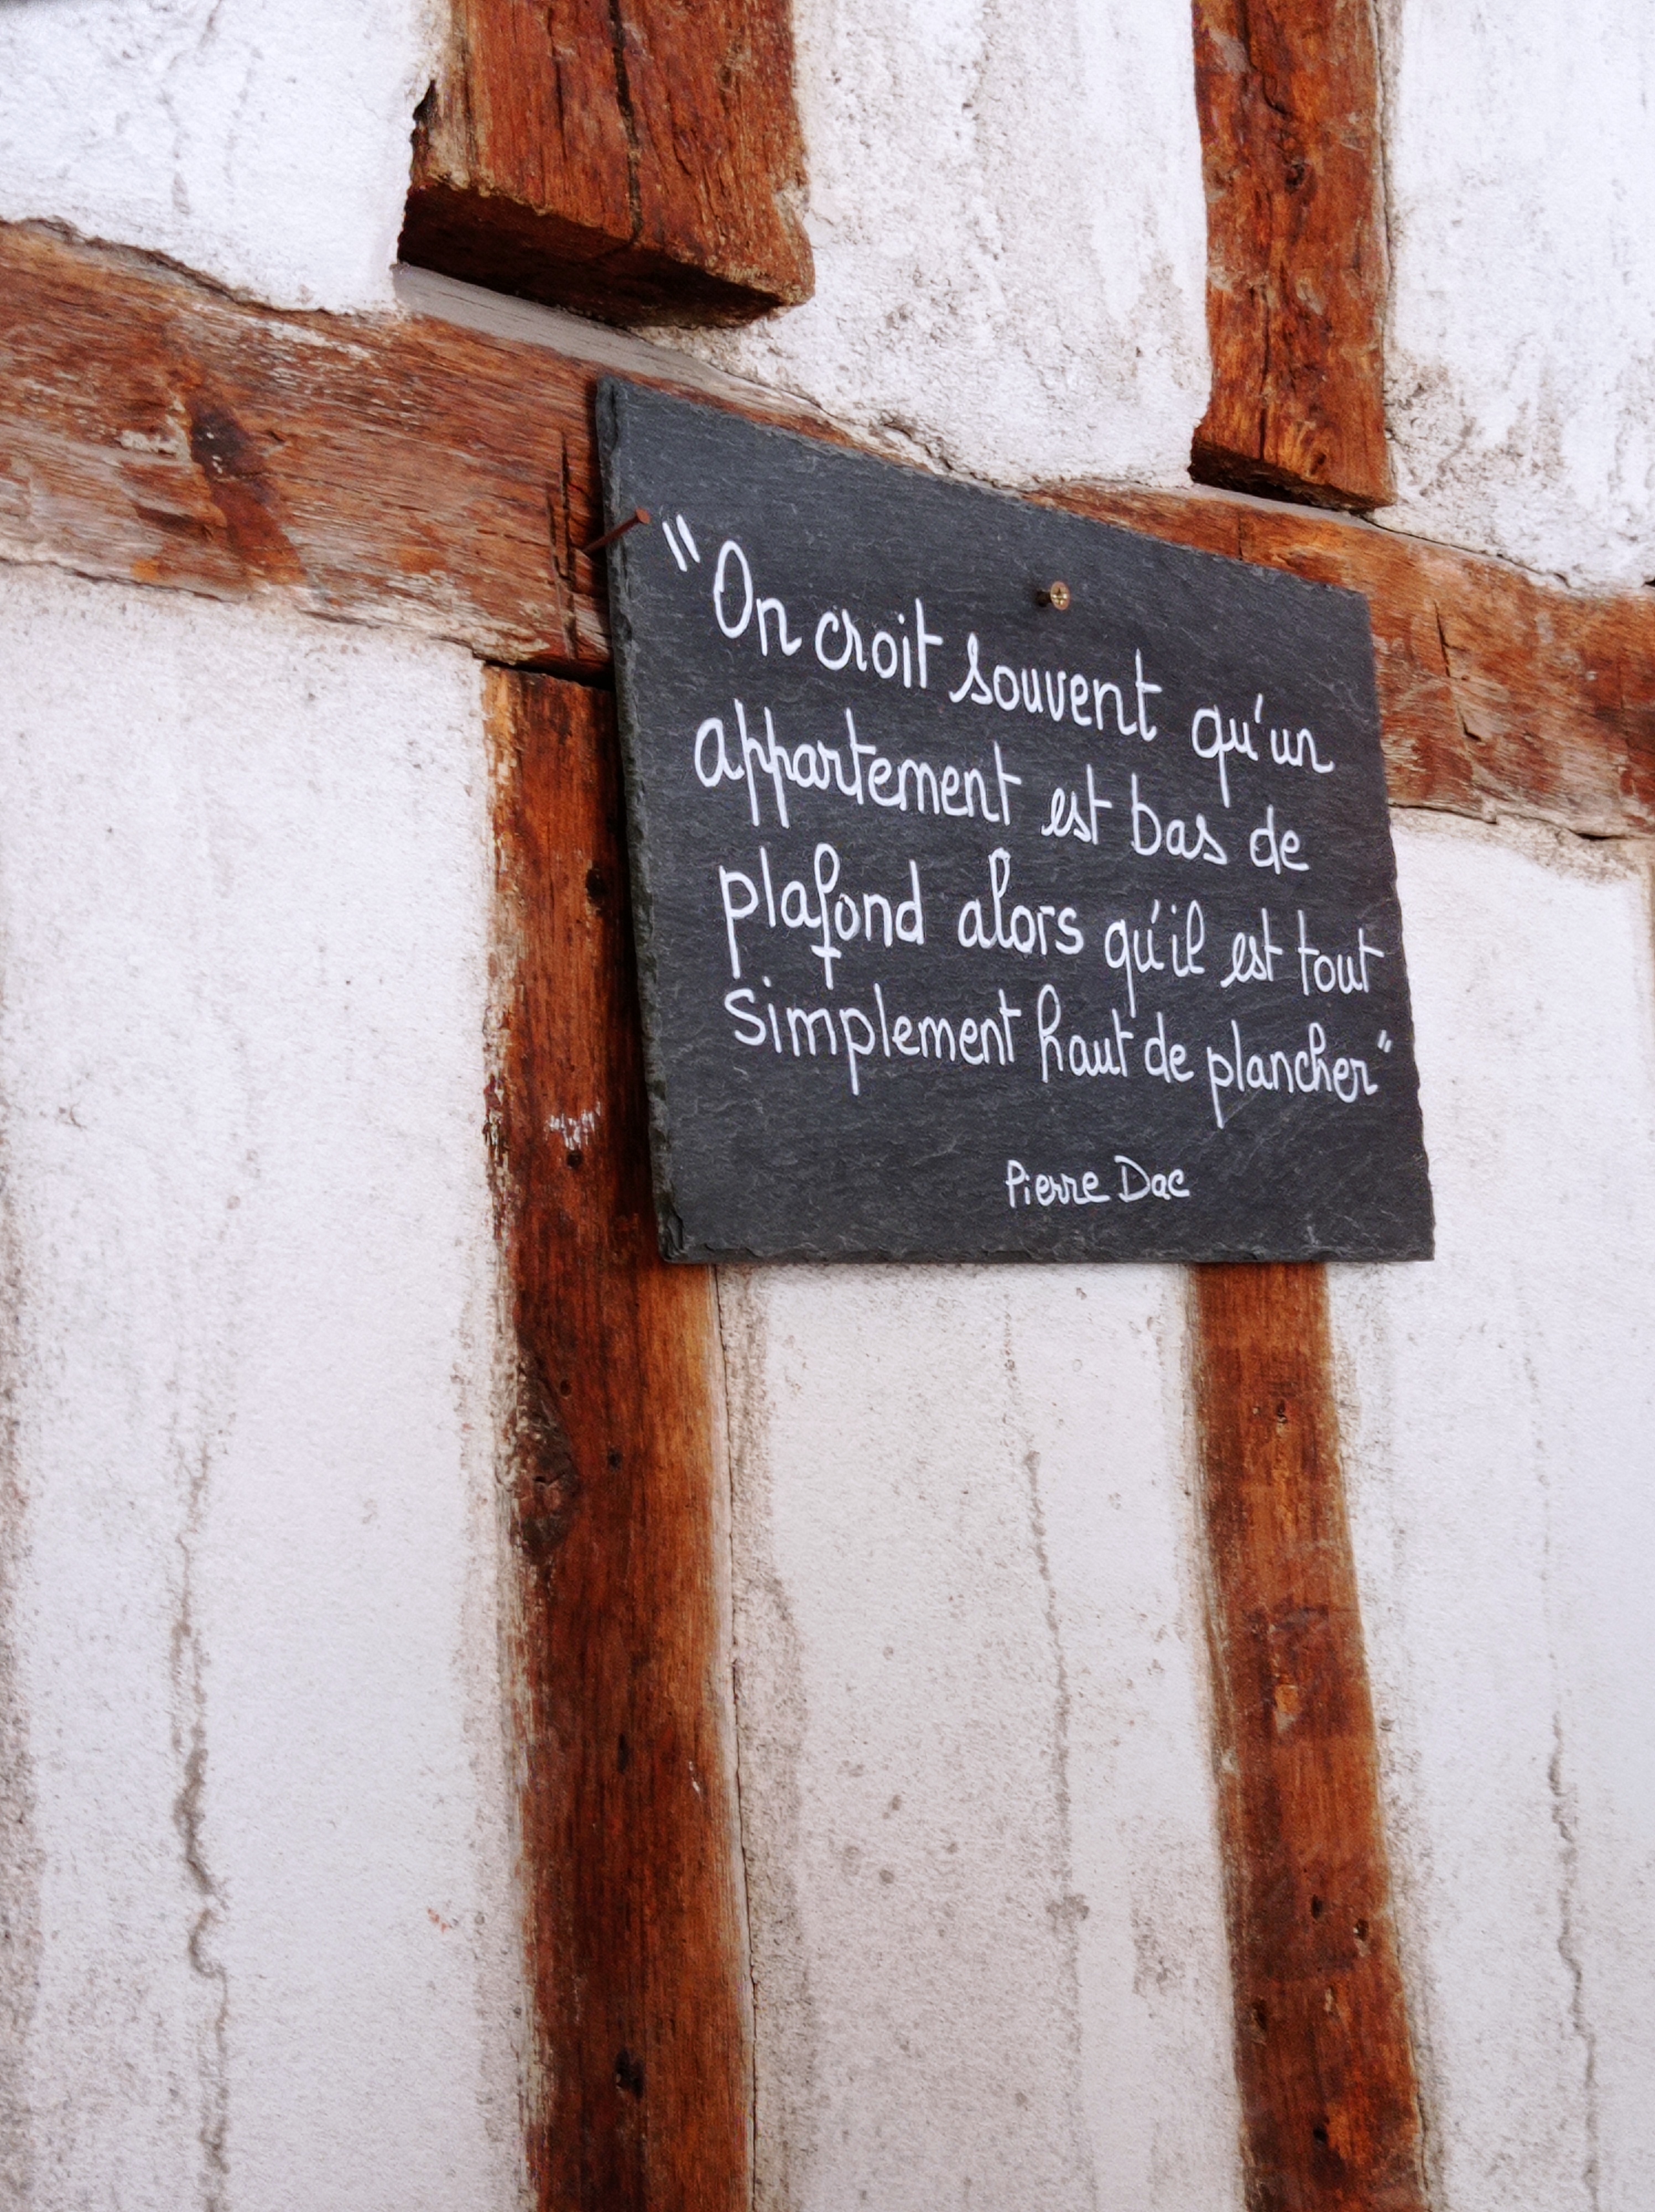 "On croit souvent qu'un
appartement est bas de
plafond alors qu'il est tout
simplement haut de plancher"
Pierre Dac